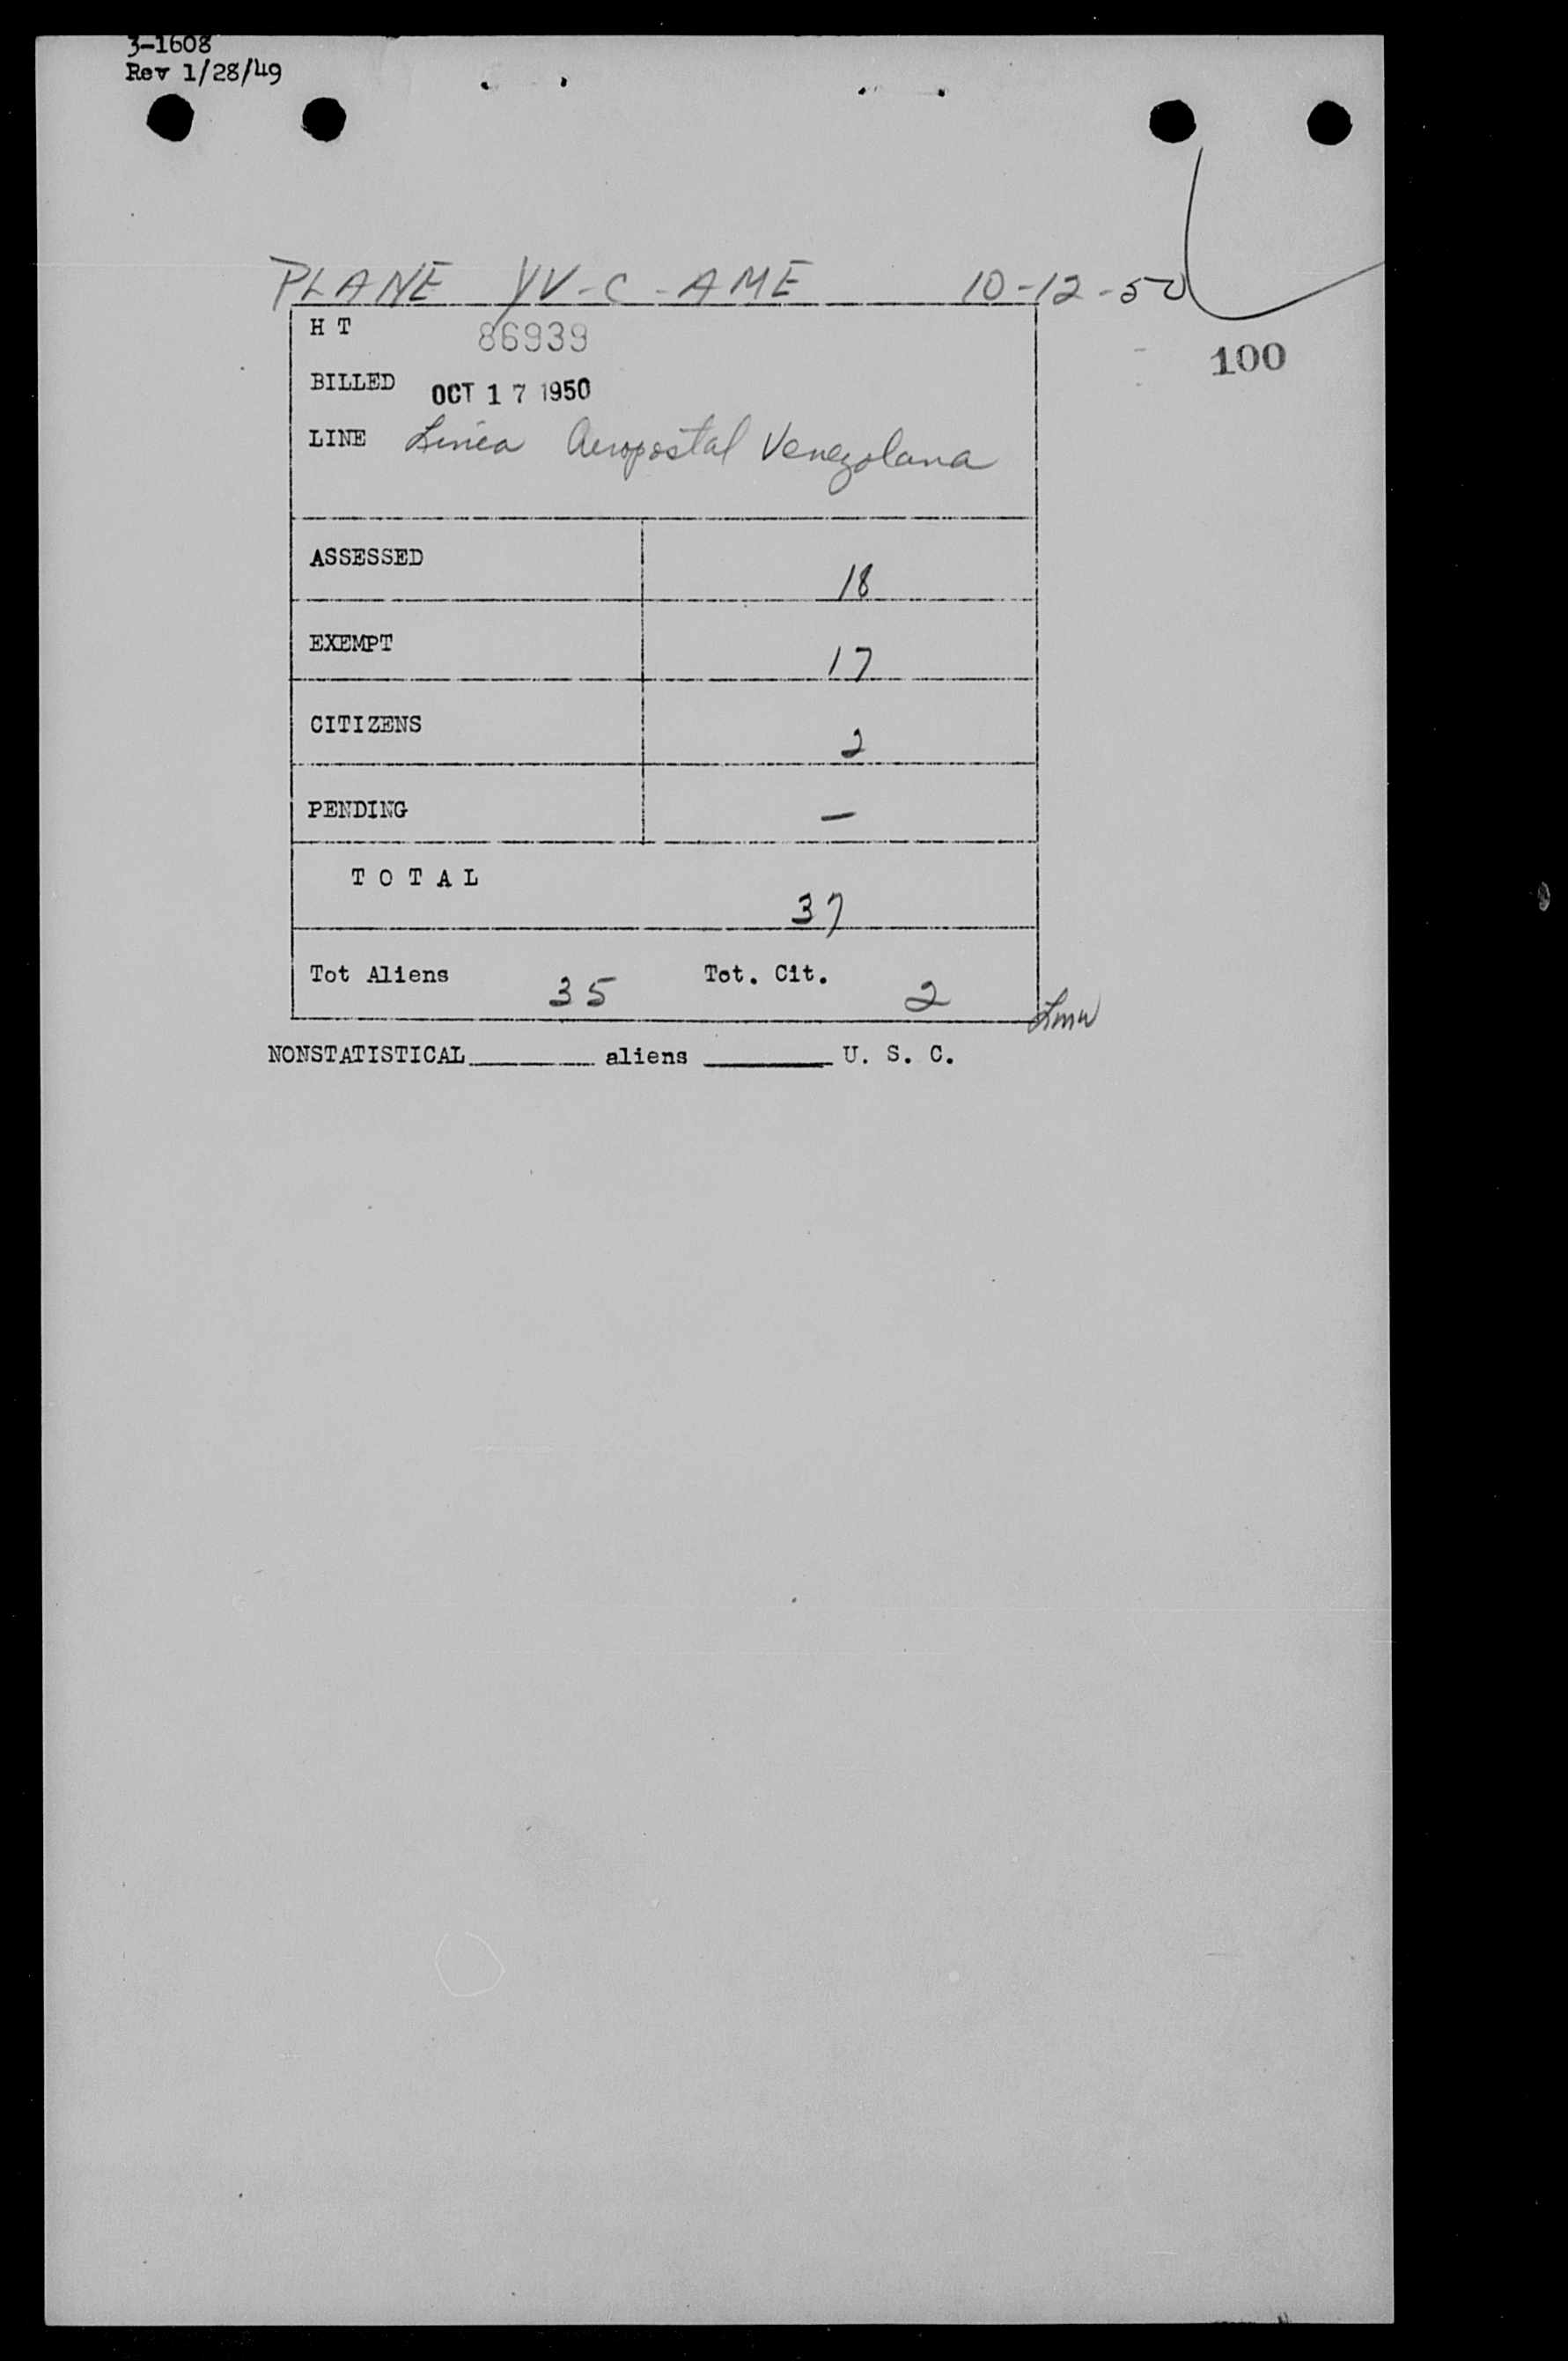 3-1608
Rev 1/28/49
PLANE YV-C-AME 10-12-50
H T 86939
100
BILLED OCT 17 1950
LINE Linea Aeropostal Venezolana
ASSESSED 18
EXEMPT 17
CITIZENS 2
PENDING —
TOTAL 37
Tot Aliens 35 Tot. Cit. 2
Lmw
NONSTATISTICAL______ aliens ______ U. S. C.